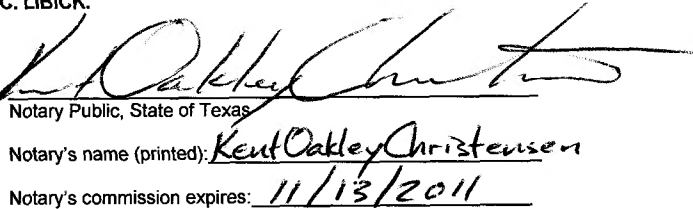 C. LIBICK.
Kent Oakley Christensen
Notary Public, State of Texas
Notary's name (printed): Kent Oakley Christensen
Notary's commission expires: 11/13/2011